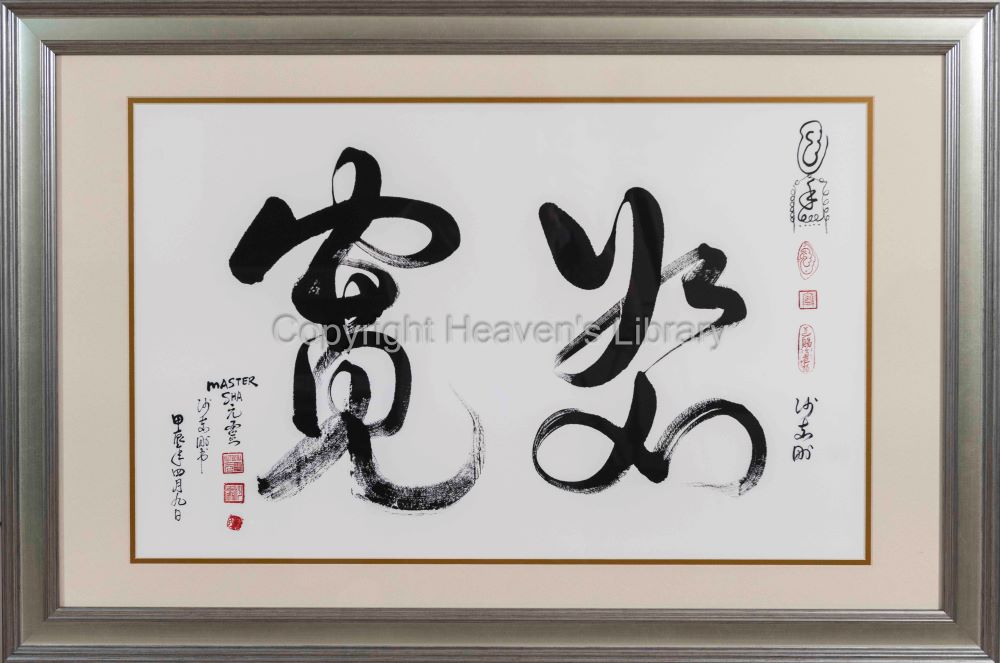 寬恕
沙志剛
MASTER
SHA 元靈
沙志剛書
甲辰年四月九日
Copyright Heaven's Library